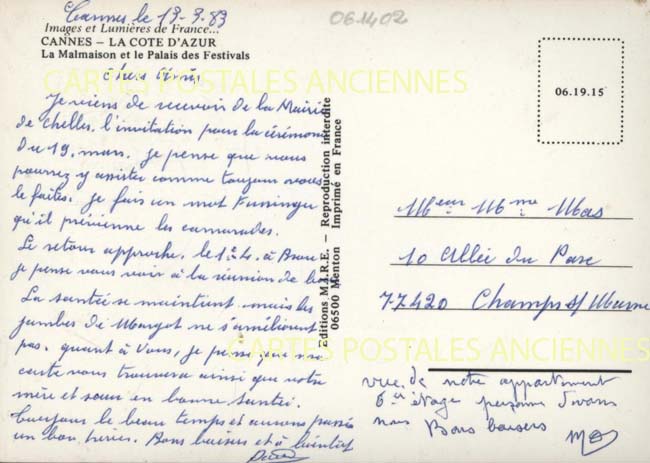 Cannes le 13-3-83
06.1402
Images et Lumières de France...
CANNES – LA COTE D'AZUR
La Malmaison et le Palais des Festivals
CARTES POSTALES ANCIENNES
Chers Amis
Je viens de recevoir de la Mairie
de Chelles, l'invitation pour la cérémonie
du 19 mars, je pense que vous
pourrez y assister comme toujours vous
le faites. je fais un mot
qu'il prévienne les camarades.
Le retour approche, le 1er 4. à
je pense vous voir à la réunion de
La santée se maintient, mais les
jambes de Margot ne s'améliorent
pas. quant à Vous, je pense que ma
carte vous trouvera ainsi que votre
mère et sœur en bonne santée.
le beau temps et aurons passé
un bon, Bons baisers et à bientôt
Editions M.A.R.E. – Reproduction interdite
06500 Menton Imprimé en France
06.19.15
Meur Mme Mas
10 Allée du Parc
77420 Champs s/ Marne
CARTES POSTALES ANCIENNES
vue de notre appartement
6em étage personne devant
nous Bons baisers